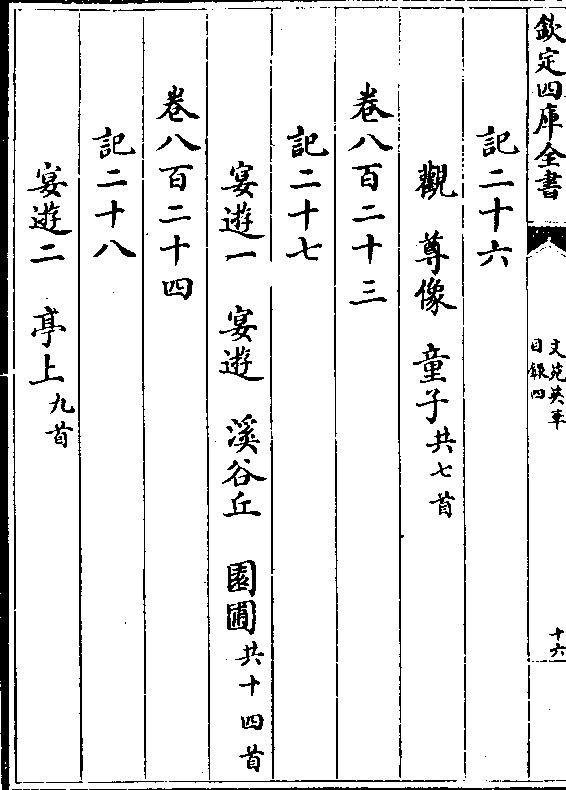 欽定四庫全書
文苑英華
目録四
十六
記二十六
觀 尊像 童子共七首
卷八百二十三
記二十七
宴遊一 宴遊 溪谷丘 園圃共十四首
卷八百二十四
記二十八
宴遊二 亭上九首